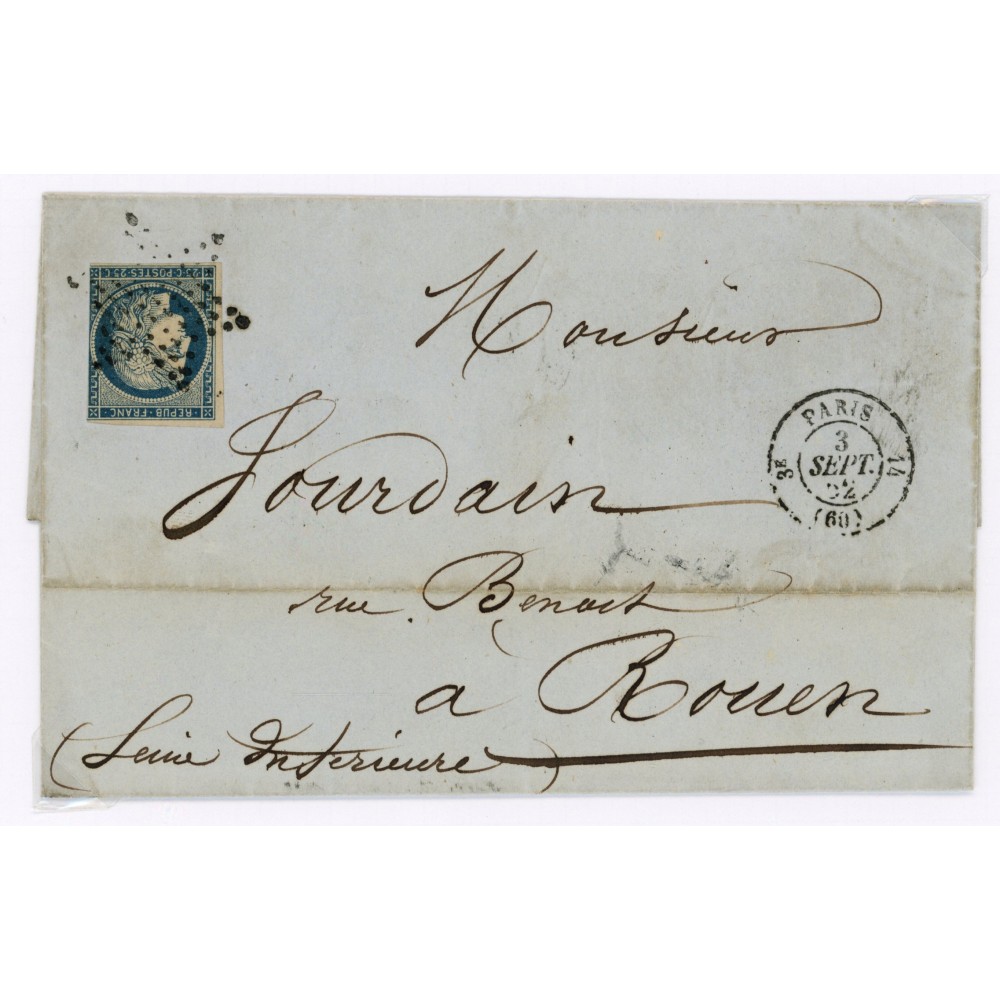 25 C · POSTES · 25 C
REPUB · FRANC
Monsieur
Jourdain
rue Benoit
à Rouen
(Seine Inférieure)
PARIS
3E
14
3
SEPT.
52
(60)